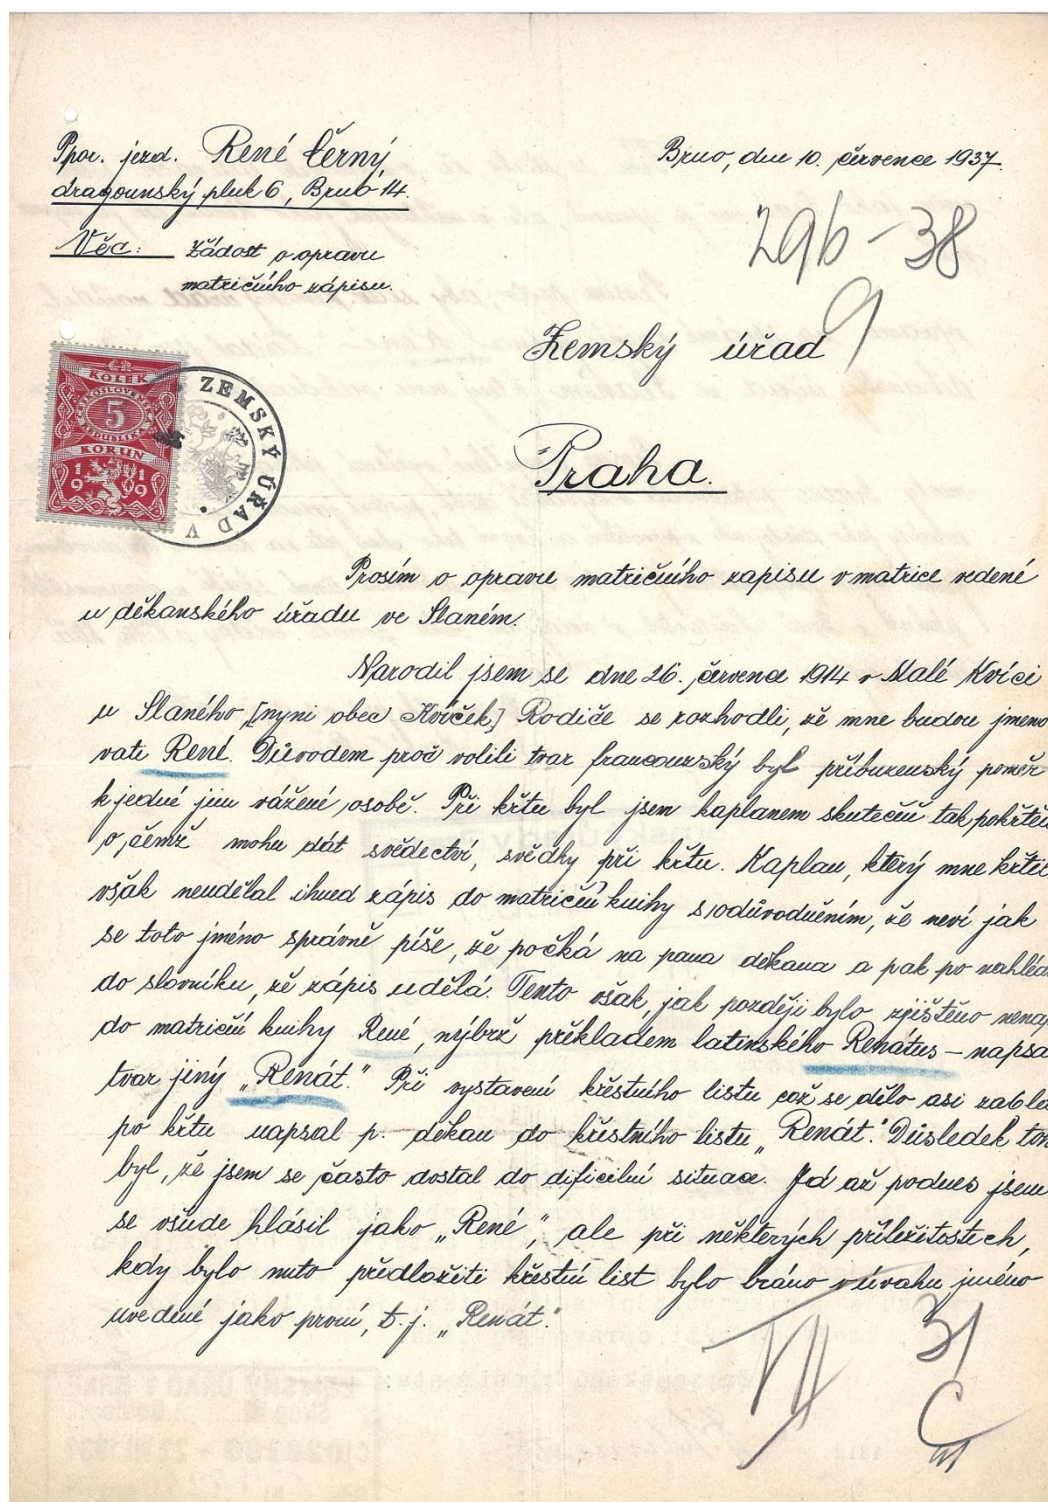 Ppor. jezd. René Černý
dragounský pluk 6, Brno 14.
Brno, dne 10. července 1937.
Věc: Žádost o opravu
matričního zápisu.
296-38
9
Zemský úřad
Praha.
ČSR
KOLEK
ČESKOSLOVENSKÁ REPUBLIKA
5
KORUN
1919
ZEMSKÝ ÚŘAD V
Prosím o opravu matričního zápisu v matrice vedené
u děkanského úřadu ve Slaném.
Narodil jsem se dne 26. července 1914 v Malé Kvíci
u Slaného [nyni obec Kvíček] Rodiče se rozhodli, že mne budou jmeno
vati René. Důvodem proč volili tvar francouzský byl příbuzenský poměr
k jedné jim vážené osobě. Při křtu byl jsem kaplanem skutečně tak pokřtěn
o čemž mohu dát svědectví, svědky při křtu. Kaplan, který mne křtil
však neudělal ihned zápis do matriční knihy s odůvodněním, že neví jak
se toto jméno správně píše, že počká na pana děkana a pak po nahléd
do slovníku, že zápis udělá. Tento však, jak později bylo zjištěno nenap
do matriční knihy René, nýbrž překladem latinského Renátus – napsa
tvar jiný „Renát." Při vystavení křestního listu což se dělo asi
po křtu napsal p. děkan do křestního listu „Renát." Důsledek toh
byl, že jsem se často dostal do dificilní situace. Já až podnes jsem
se všude hlásil jako „René", ale při některých příležitostech,
kdy bylo nuto předložiti křestní list bylo bráno v úvahu jméno
uvedené jako první, t. j. „Renát."
31